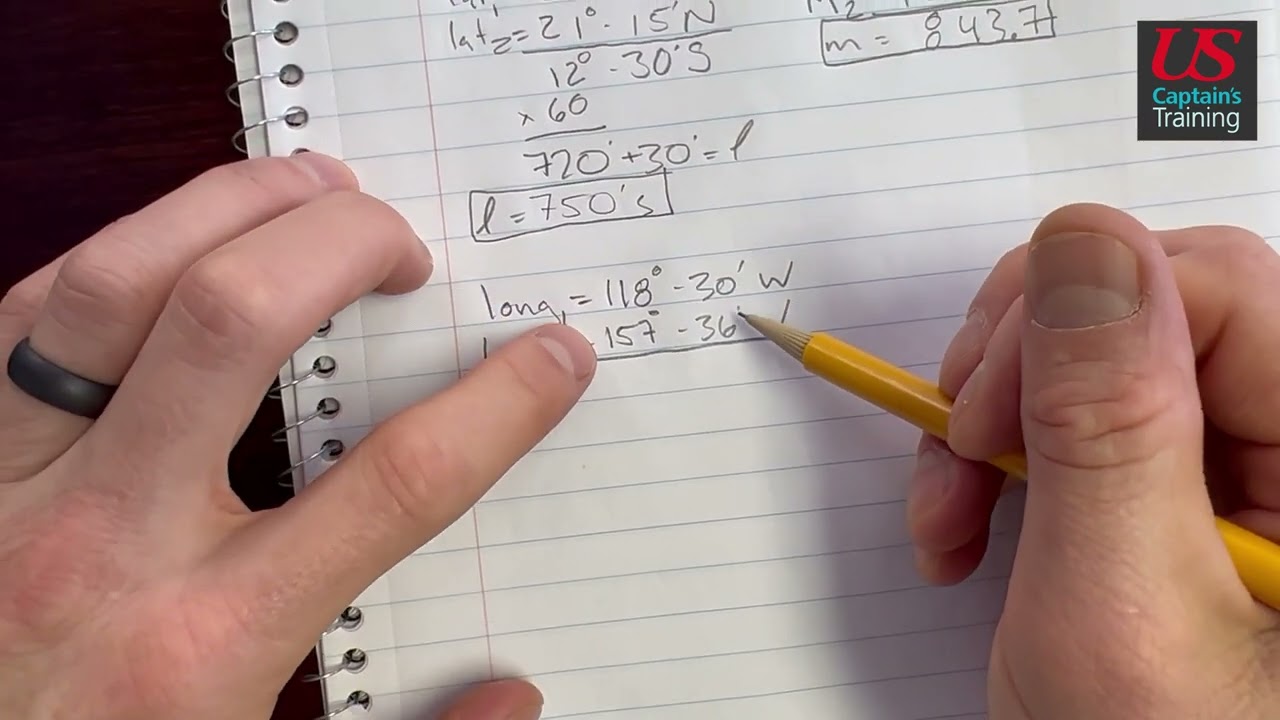 lat₂ = 21° - 15'N
m = 843.7
12° - 30'S
x 60
720' + 30' = l
l = 750's
long₁ = 118° - 30' W
157° - 36'
US
Captain's
Training